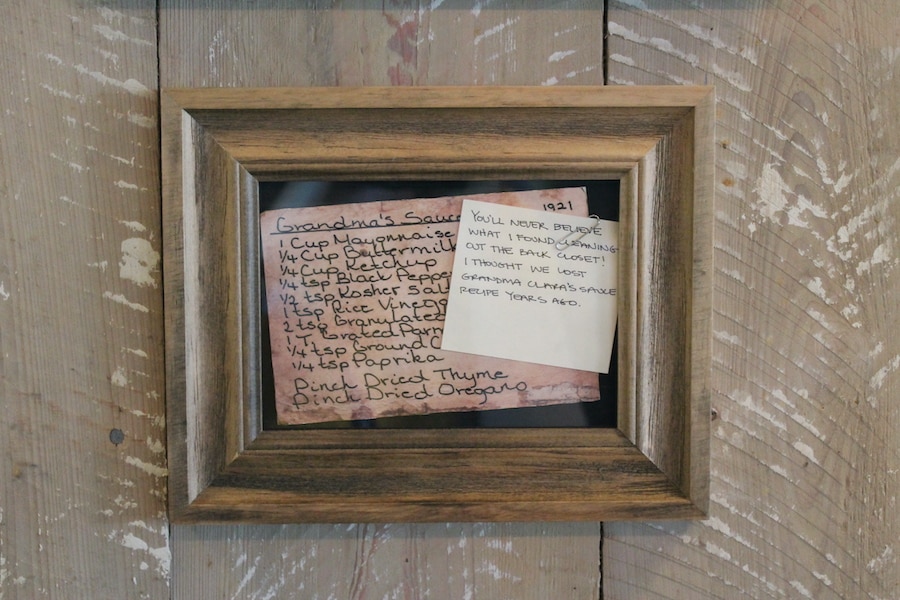 Grandma's Sauce
1921
1 Cup Mayonnaise
1/4 Cup Buttermilk
1/4 Cup Ketchup
1/4 tsp Black Pepper
1/2 tsp Kosher Salt
1 tsp Rice Vinegar
2 tsp Granulated
1 T. Grated Parm
1/4 tsp Ground
1/4 tsp Paprika
Pinch Dried Thyme
Pinch Dried Oregano
YOU'LL NEVER BELIEVE
WHAT I FOUND CLEANING
OUT THE BACK CLOSET!
I THOUGHT WE LOST
GRANDMA CLARA'S SAUCE
RECIPE YEARS AGO.